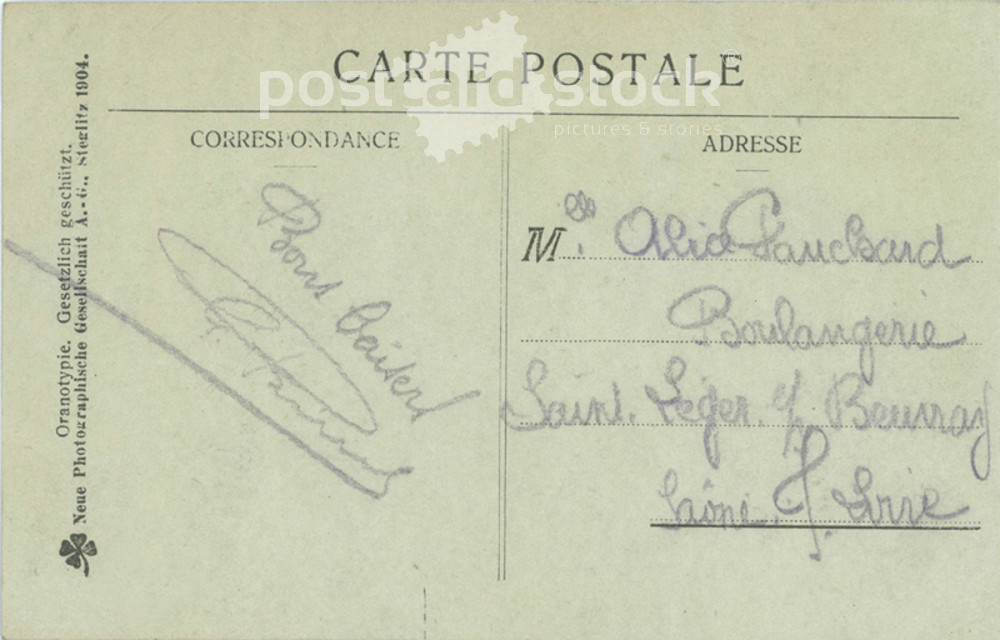 CARTE POSTALE
postcard stock
pictures & stories
CORRESPONDANCE
ADRESSE
Oranotypie. Gesetzlich geschützt.
Neue Photographische Gesellschaft A.-G., Steglitz 1904.
Bons baisers
Mlle. Alice Pauchard
Boulangerie
Saint. Léger. s/ Beuvray
Saône. s/. Loire